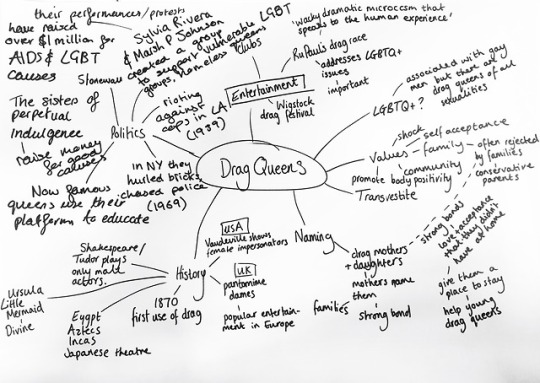 their performances/protests
have raised
over $1 million for
AIDS & LGBT
causes
Stonewall
The sisters of
perpetual
indulgence
raise money
for good
causes
Now famous
queens use their
platform to educate
Politics
Sylvia Rivera
& Marsh P Johnson
created a group
to support vulnerable LGBT
groups, homeless queens
rioting
against
cops in LA
(1959)
in NY they
hurled bricks,
chased police
(1969)
Drag Queens
Entertainment
clubs
'wacky dramatic microcosm that
speaks to the human experience'
RuPauls drag race
addresses LGBTQ+
issues
important
Wigstock
drag festival
LGBTQ+?
associated with gay
men but there are
drag queens of all
sexualities
Values
shock
self acceptance
family
community
promote body positivity
often rejected
by families
conservative
parents
Transvestite
Naming
drag mothers
+ daughters
mothers name
them
families
strong bond
strong bonds
love + acceptance
that they didn't
have at home
give them a
place to stay
help young
drag queens
History
USA
Vaudeville shows
female impersonators
UK
pantomime
dames
popular entertain-
ment in Europe
1870
first use of drag
Shakespeare/
Tudor plays
only male
actors.
Ursula
Little
Mermaid
Divine
Eygpt
Aztecs
Incas
Japanese theatre